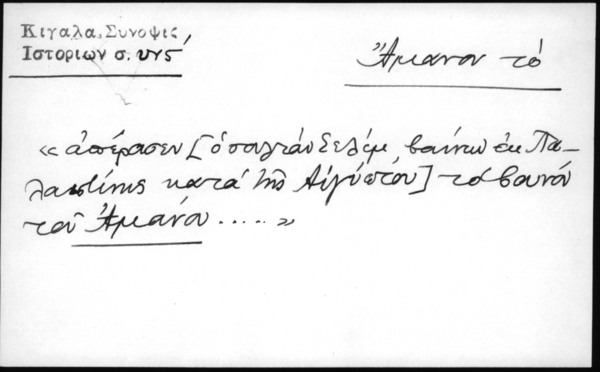 Κιγαλα, Συνοψις
Ιστοριων σ. υνδ´
Ἄμανον τό
«ἀπέρασεν [ὁ σουλτάν Σελήμ, βαίνων ἐκ Πα-
λαιστίνης κατά τῆς Αἰγύπτου] τό βουνό
τοῦ Ἀμάνου .....»